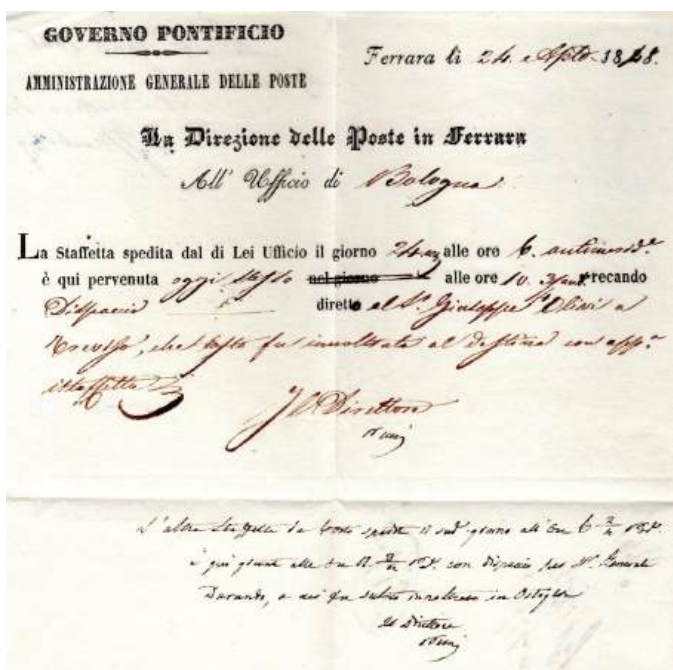 GOVERNO PONTIFICIO
AMMINISTRAZIONE GENERALE DELLE POSTE
Ferrara lì 24. 1848.
La Direzione delle Poste in Ferrara
All' Ufficio di Bologna
La Staffetta spedita dal di Lei Ufficio il giorno 24 alle ore 6. antimerid.e
è qui pervenuta oggi stesso nel giorno alle ore 10. recando
Dispaccio diretto al S.r Giuseppe Olivi a
Treviso, che tosto fu inoltrata al destino con app.a
istaffetta
Il Direttore
L'altra Staffetta da costì spedita il sud.o giorno all'ore 6
è qui giunta alle ore con dispaccio pel Generale
Durando, e fu subito inoltrato in Ostiglia
Il Direttore